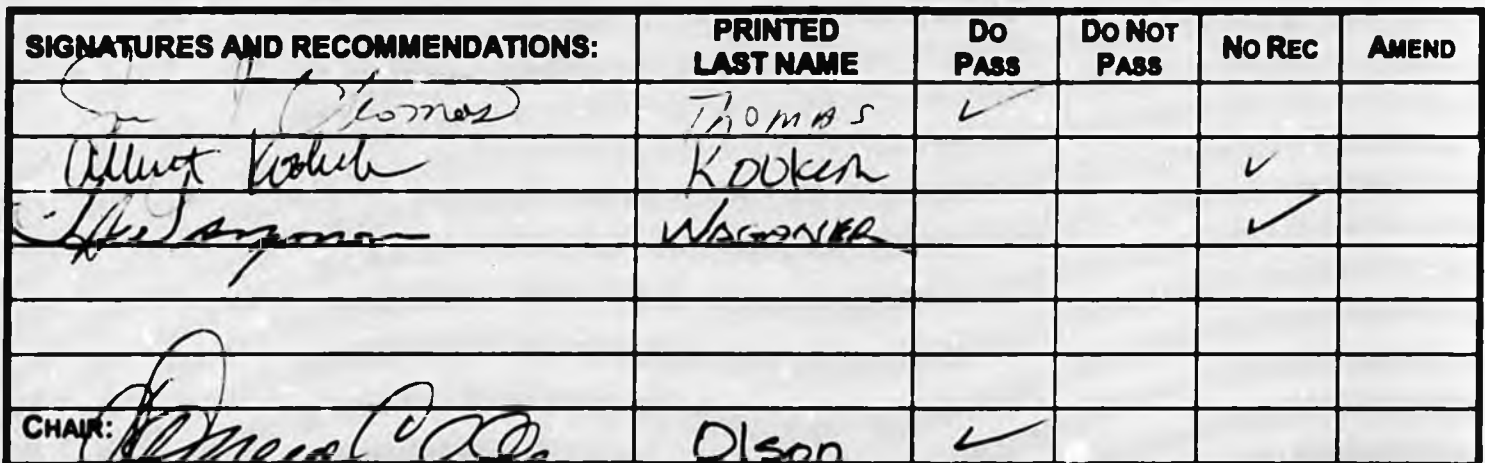 SIGNATURES AND RECOMMENDATIONS: PRINTED LAST NAME DO PASS DO NOT PASS NO REC AMEND
Thomas THOMAS ✓
Albert KOOKESH ✓
WAGONER ✓
CHAIR: Olson ✓